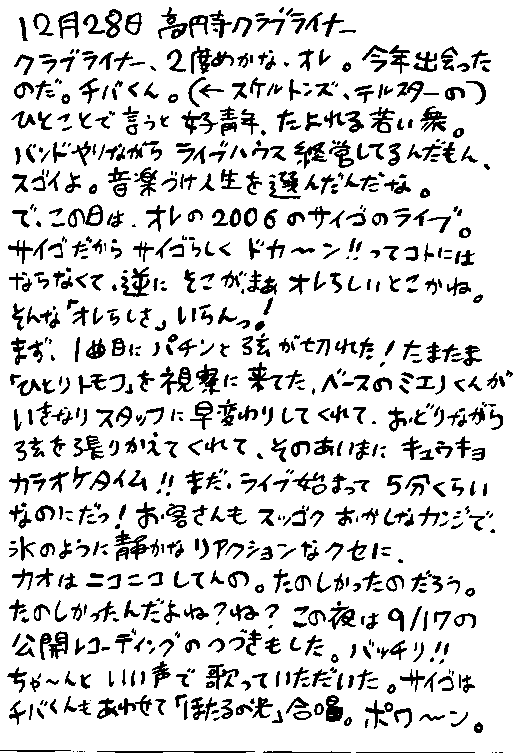 12月28日 高円寺クラブライナー
クラブライナー、2度めかな、オレ。今年出会った
のだ。チバくん。(←スケルトンズ、テルスターの)
ひとことで言うと 好青年、たよれる若い衆。
バンドやりながら ライブハウス経営してるんだもん、
スゴイよ。音楽づけ人生を選んだんだな。
で、この日は、オレの2006のサイゴのライブ。
サイゴだから サイゴらしく ドカ〜ン!!ってコトには
ならなくて、逆に そこが、まあ オレらしいとこかね。
そんな「オレらしさ」いらんっ!
まず、1曲目に パチンと 弦が切れた! たまたま
「ひとりトモフ」を視察に来てた、ベースのミエノくんが
いきなり スタッフに早変わりしてくれて、おどりながら
弦を張りかえてくれて、そのあいまに キュウキョ
カラオケタイム!! まだ、ライブ始まって 5分くらい
なのにだっ! お客さんも スッゴク おかしなカンジで、
氷のように静かな リアクションなクセに、
カオは ニコニコしてんの。たのしかったのだろう。
たのしかったんだよね? ね? この夜は 9/17の
公開レコーディングのつづきもした。バッチリ!!
ちゃ〜んと いい声で 歌っていただいた。サイゴは
チバくんもあわせて「ほたるの光」合唱。ポワ〜ン。